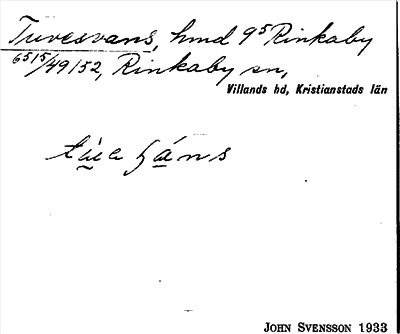 Tuvesvans, hmd 9⁵ Rinkaby
6515/49152, Rinkaby sn,
Villands hd, Kristianstads län
JOHN SVENSSON 1933